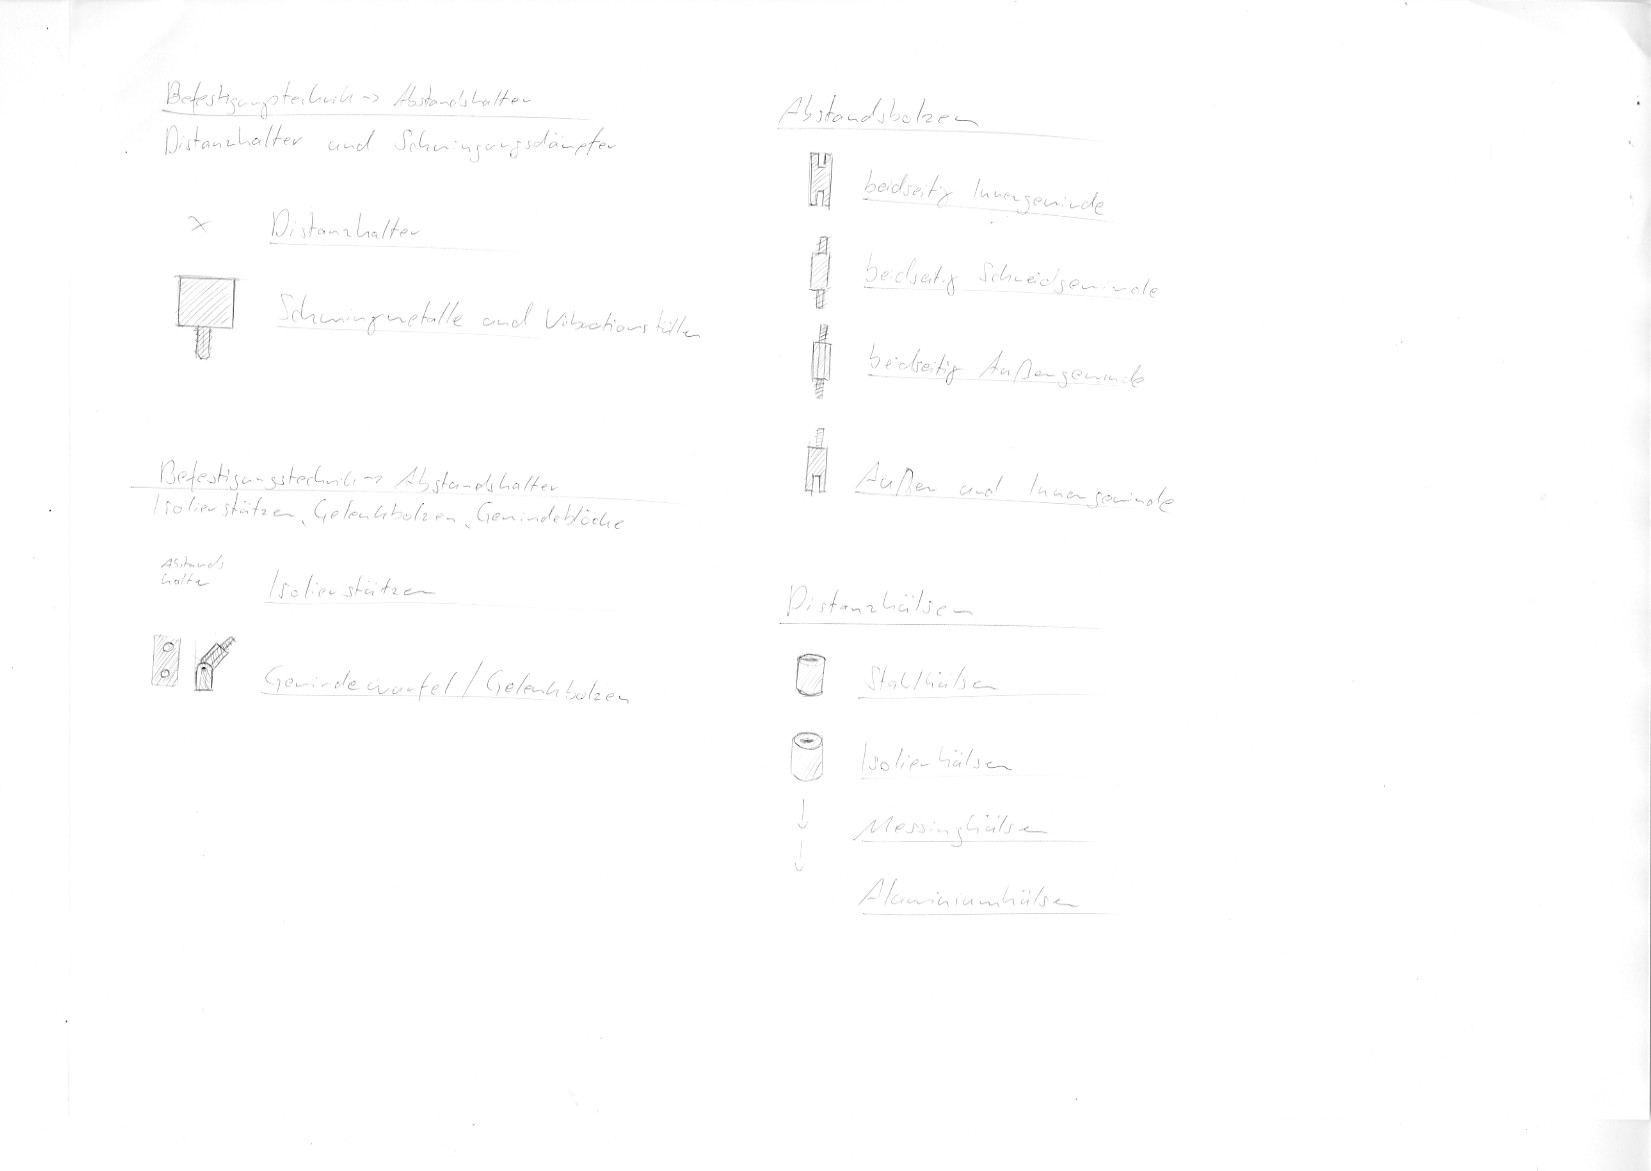 Befestigungstechnik -> Abstandshalter
Distanzhalter und Schwingungsdämpfer
x Distanzhalter
Schwingmetalle und Vibrationstüllen
Befestigungstechnik -> Abstandshalter
Isolierstützen, Gelenkbolzen, Gewindeblöcke
Abstands
halter
Isolierstützen
Gewindewürfel / Gelenkbolzen
Abstandsbolzen
beidseitig Innengewinde
beidseitig Schneidgewinde
beidseitig Außengewinde
Außen und Innengewinde
Distanzhülsen
Stahlhülsen
Isolierhülsen
Messinghülsen
Aluminiumhülsen